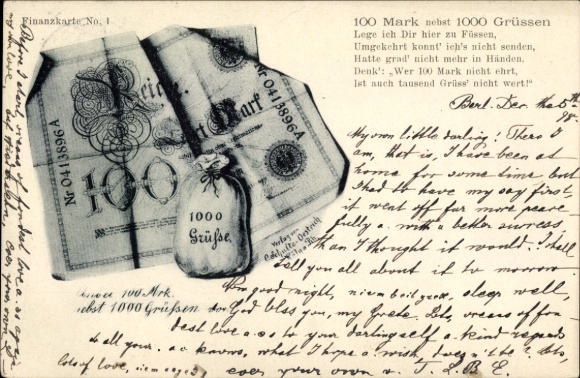 Finanzkarte No. 1
100 Mark nebst 1000 Grüssen
Lege ich Dir hier zu Füssen,
Umgekehrt konnt' ich's nicht senden,
Hatte grad' nicht mehr in Händen.
Denk': „Wer 100 Mark nicht ehrt,
Ist auch tausend Grüss' nicht wert!"
Nr 0413896A
Mark
100
Nr 0413896A
1000
Grüße.
Verlag von
100 Mrk.
nebst 1000 Grüßen
Berl. Dec. the 5th
98.
My own little darling! There I
am, that is, I have been at
home for some time but
I had to have my say first,
it went off far more peace-
fully a. with a better success,
than I thought it would. I shall
tell you all about it to morrow
good night, sleep well,
God bless you, my Grete. Lots, oceans of fon
dest love a. so to your darling self a. kind regards
to all your. a. knows, what I hope a. wish,
lots of love,
ever your own
Before I start, oceans of fondest love a. so again
my own love,
ever your own